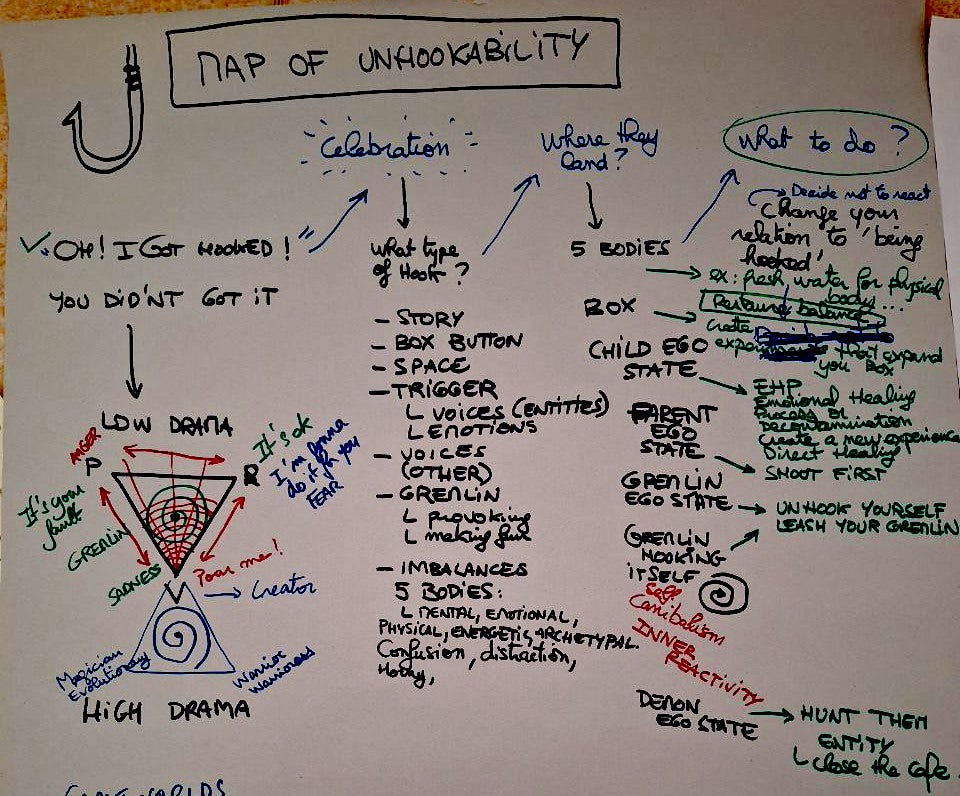 MAP OF UNHOOKABILITY
✓ OH! I GOT HOOKED!"
YOU DID'NT GOT IT
LOW DRAMA
ANGER
P
R
It's ok
I'm gonna
do it for you
FEAR
It's your
fault
GREMLIN
SADNESS
Poor me!
V
→ Creator
Magician
Evolutionary
Warrior
Warrioress
HIGH DRAMA
Celebration
What type
of Hook?
- STORY
- BOX BUTTON
- SPACE
- TRIGGER
L VOICES (ENTITIES)
L EMOTIONS
- VOICES
(OTHER)
- GREMLIN
L provoking
L making fun
- IMBALANCES
5 BODIES:
L MENTAL, EMOTIONAL,
PHYSICAL, ENERGETIC, ARCHETYPAL.
Confusion, distraction,
Where they
land?
5 BODIES
BOX
CHILD EGO
STATE
PARENT
EGO
STATE
GREMLIN
EGO STATE
GREMLIN
HOOKING
ITSELF
Self
Canibalism
INNER
REACTIVITY
DEMON
EGO STATE
What to do?
Decide not to react
Change your
relation to 'being
hooked'
ex: fresh water for physical
body...
balance
create
that expand
you Box
EHP
Emotional Healing
Process or
Decontamination
Create a new experience
Direct Healing
SHOOT FIRST
UNHOOK YOURSELF
LEASH YOUR GREMLIN
HUNT THEM
ENTITY
L close the